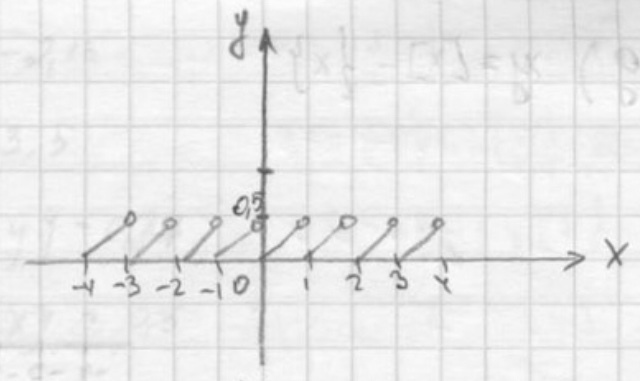 y
0,5
-4 -3 -2 -1 0 1 2 3 4 X